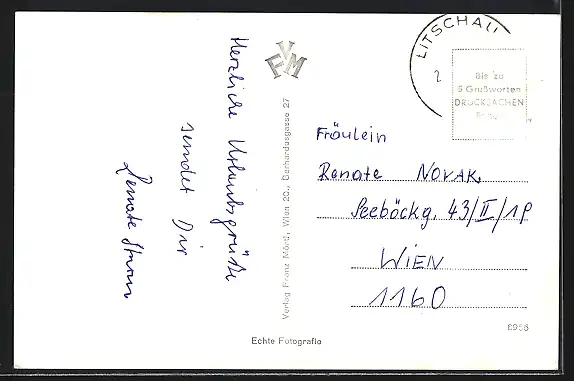 Herzliche Urlaubsgrüße
sendet Dir
Renate
VFM
Verlag Franz Mörtl, Wien 20., Gerhardusgasse 27
LITSCHAU
2
Bis zu
5 Grußworten
DRUCKSACHEN
Fräulein
Renate NOVAK
Seeböckg. 43/II/19
WIEN
1160
8956
Echte Fotografie